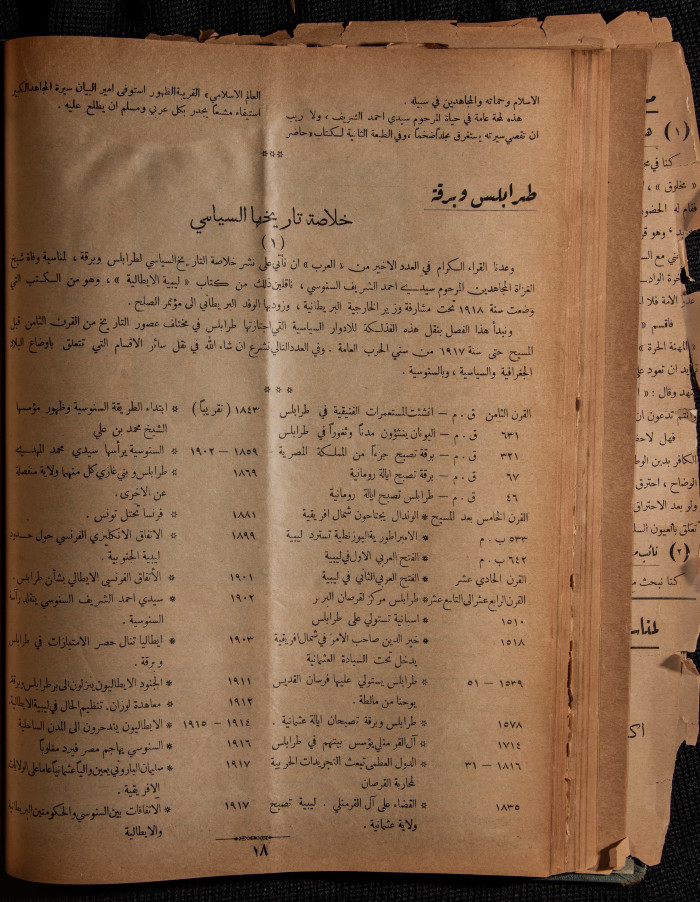 الاسلام وحماته والمجاهدين في سبيله .
هذه لمحة عامة في حياة المرحوم سيدي احمد الشريف ، ولا ريب
ان تقصي سيرته يستغرق مجلداً ضخماً ، وفي الطبعة الثانية لكتاب « حاضر
العالم الاسلامي » القريبة الظهور استوفى امير البيان سيرة المجاهد الكبير
استيفاء مشبعاً يجدر بكل عربي ومسلم ان يطلع عليه .
***
طرابلس وبرقة
خلاصة تاريخها السياسي
(١)
وعدنا القراء الكرام في العدد الاخير من « العرب » ان نأتي على نشر خلاصة التاريخ السياسي لطرابلس وبرقة ، لمناسبة وفاة شيخ
الغزاة المجاهدين المرحوم سيدي احمد الشريف السنوسي ، ناقلين ذلك من كتاب « ليبية الايطالية » ، وهو من الكتب التي
وضعت سنة ١٩١٨ تحت مشارفة وزير الخارجية البريطانية ، وزود بها الوفد البريطاني الى مؤتمر الصلح .
ونبدأ هذا الفصل بنقل هذه الفذلكة للادوار السياسية التي اجتازتها طرابلس في مختلف عصور التاريخ من القرن الثامن قبل
المسيح حتى سنة ١٩١٧ من سني الحرب العامة . وفي العدد التالي نشرع ان شاء الله في نقل سائر الاقسام التي تتعلق باوضاع البلاد
الجغرافية والسياسية ، وبالسنوسية .
* * *
القرن الثامن ق . م — انشئت المستعمرات الفنيقية في طرابلس
٦٣١ ق . م — اليونان ينشؤون مدناً وثغوراً في طرابلس
٣٢١ ق . م — برقة تصبح جزءاً من المملكة المصرية
٦٧ ق . م — برقة تصبح ايالة رومانية
٤٦ ق . م — طرابلس تصبح ايالة رومانية
القرن الخامس بعد المسيح * الوندال يجتاحون شمال افريقية
٥٣٣ ب . م * الامبراطورية البوزنطية تسترد ليبية
٦٤٢ ب . م * الفتح العربي الاول في ليبية
القرن الحادي عشر * الفتح العربي الثاني في ليبية
القرن الرابع عشر الى التاسع عشر * طرابلس مركز لقرصان البربر
١٥١٠ * اسبانية تستولي على طرابلس
١٥١٨ * خير الدين صاحب الامر في شمال افريقية
يدخل تحت السيادة العثمانية
١٥٣٩ — ٥١ * طرابلس يستولي عليها فرسان القديس
يوحنا من مالطة .
١٥٧٨ * طرابلس وبرقة تصبحان ايالة عثمانية .
١٧١٤ * آل القرمنلي يؤسس بيتهم في طرابلس
١٨١٦ — ٣١ * الدول العظمى تبعث التجريدات الحربية
لمحاربة القرصان
١٨٣٥ * القضاء على آل القرمنلي . ليبية تصبح
ولاية عثمانية .
١٨٤٣ (تقريباً) * ابتداء الطريقة السنوسية وظهور مؤسسها
الشيخ محمد بن علي
١٨٥٩ — ١٩٠٢ * السنوسية يرأسها سيدي محمد المهدي
١٨٦٩ * طرابلس وبني غازي كل منهما ولاية منفصلة
عن الاخرى .
١٨٨١ * فرنسا تحتل تونس .
١٨٩٩ * الاتفاق الانكليزي الفرنسي حول حدود
ليبية الجنوبية .
١٩٠١ * الاتفاق الفرنسي الايطالي بشأن طرابلس .
١٩٠٢ * سيدي احمد الشريف السنوسي يتقلد رآسة
السنوسية .
١٩٠٣ * ايطاليا تنال حصر الامتيازات في طرابلس
وبرقة .
١٩١١ * الجنود الايطاليون ينزلون الى بر طرابلس وبرقة
١٩١٢ * معاهدة لوزان . تنظيم الحال في ليبية الايطالية
١٩١٤ — ١٩١٥ * الايطاليون يندحرون الى المدن الساحلية
١٩١٦ * السنوسي يهاجم مصر فيرد مغلوباً
١٩١٧ * سليمان الباروني يعين والياً عثمانياً عاما على الولايات
الافريقية .
١٩١٧ * الاتفاقات بين السنوسي والحكومتين البريطانية
والايطالية
١٨
(١)
كنا في
« مخلوق » ،
فقام له الحضور
فاقسم «
« المهنة الحرة »
فهل
الكافر بدين
الوضاح ، احترق
ولو بعد الاحتراق
تعلق بالعيون
(٢) نائب
كنا نبحث